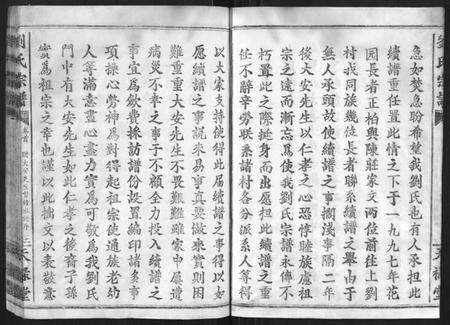 急如焚急盼希望我劉氏也有人承担此
續譜重任置此情之下于一九九七年花
园長者正柏與陳莊家文两位前往上劉
村找同族幾位長者聯系續譜之舉由于
無人承頭故使續譜之事擱淺事隔二年
後大安先生以仁孝之心恐悖睦族盧祖
宗之遠而漸忘爲使我劉氏宗譜永傳不
朽置此之際挺身而出愿担此續譜之重
任不辭辛勞联系諸村各分派系人等得
以大家支持使得此續譜之事得以如
愿續譜之事説來易事真要做來實則困
難重重大安先生不畏艱難雖家中屡遭
病災不幸之事于不顧全力投入續譜之
事宜爲歛費採訪譜份設置編印諸多事
項操心勞神爲對得起祖宗使遺族老幼
人等滿意盡心盡力實爲可敬爲我劉氏
門中有大安先生如此仁孝之後裔子孫
實爲祖宗之幸也謹以此拙文以表敬意
劉氏宗譜
卷首
三
天祿堂